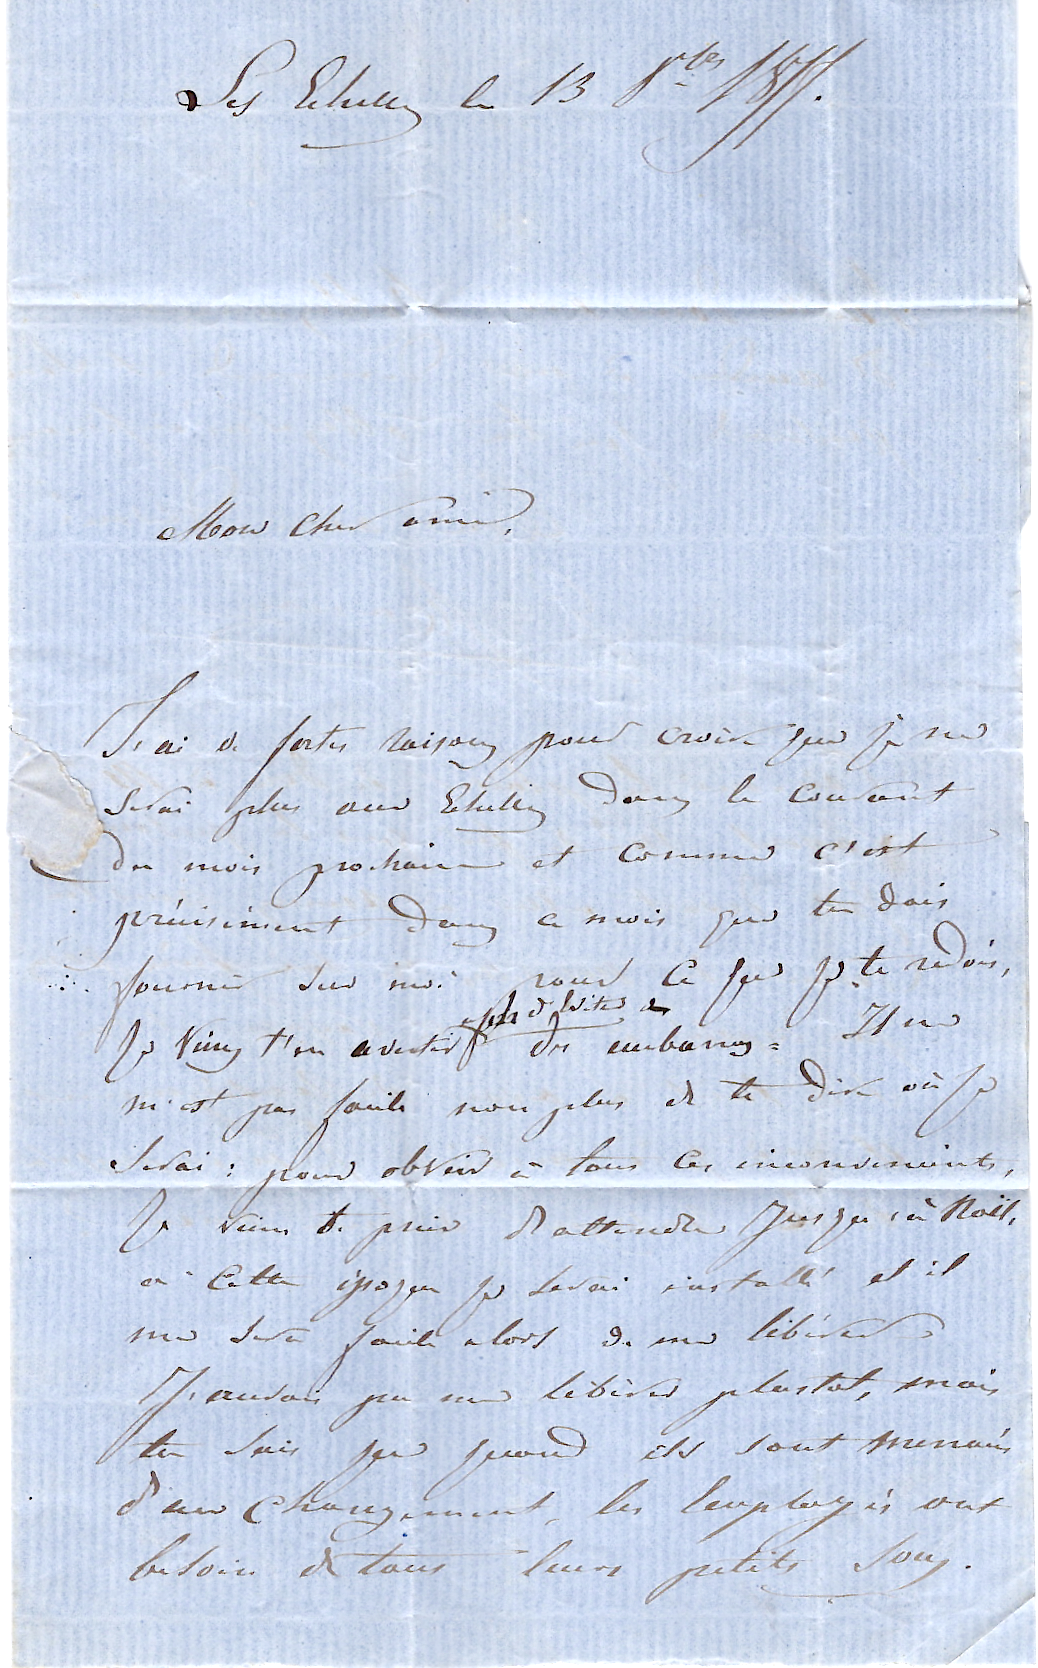 Les Echelles le 13 8bres 1855.
Mon cher ami,
J'ai de fortes raisons pour croire que je ne
serai plus aux Echelles dans le courant
du mois prochain et comme c'est
précisément dans ce mois que tu dois
fournir sur moi pour ce que je te redois,
afin d'éviter
Je viens t'en avertir des embarras = Il ne
m'est pas facile non plus de te dire où je
serai : pour obvier à tous ces inconvenients,
Je viens te prier d'attendre jusqu'à Noël,
à cette époque je serai installé et il
me sera facile alors de me libérer
J'aurais pu me libérer plustot, mais
tu sais que quand ils sont menacés
d'un changement, les employés ont
besoin de tous leurs petits sous.